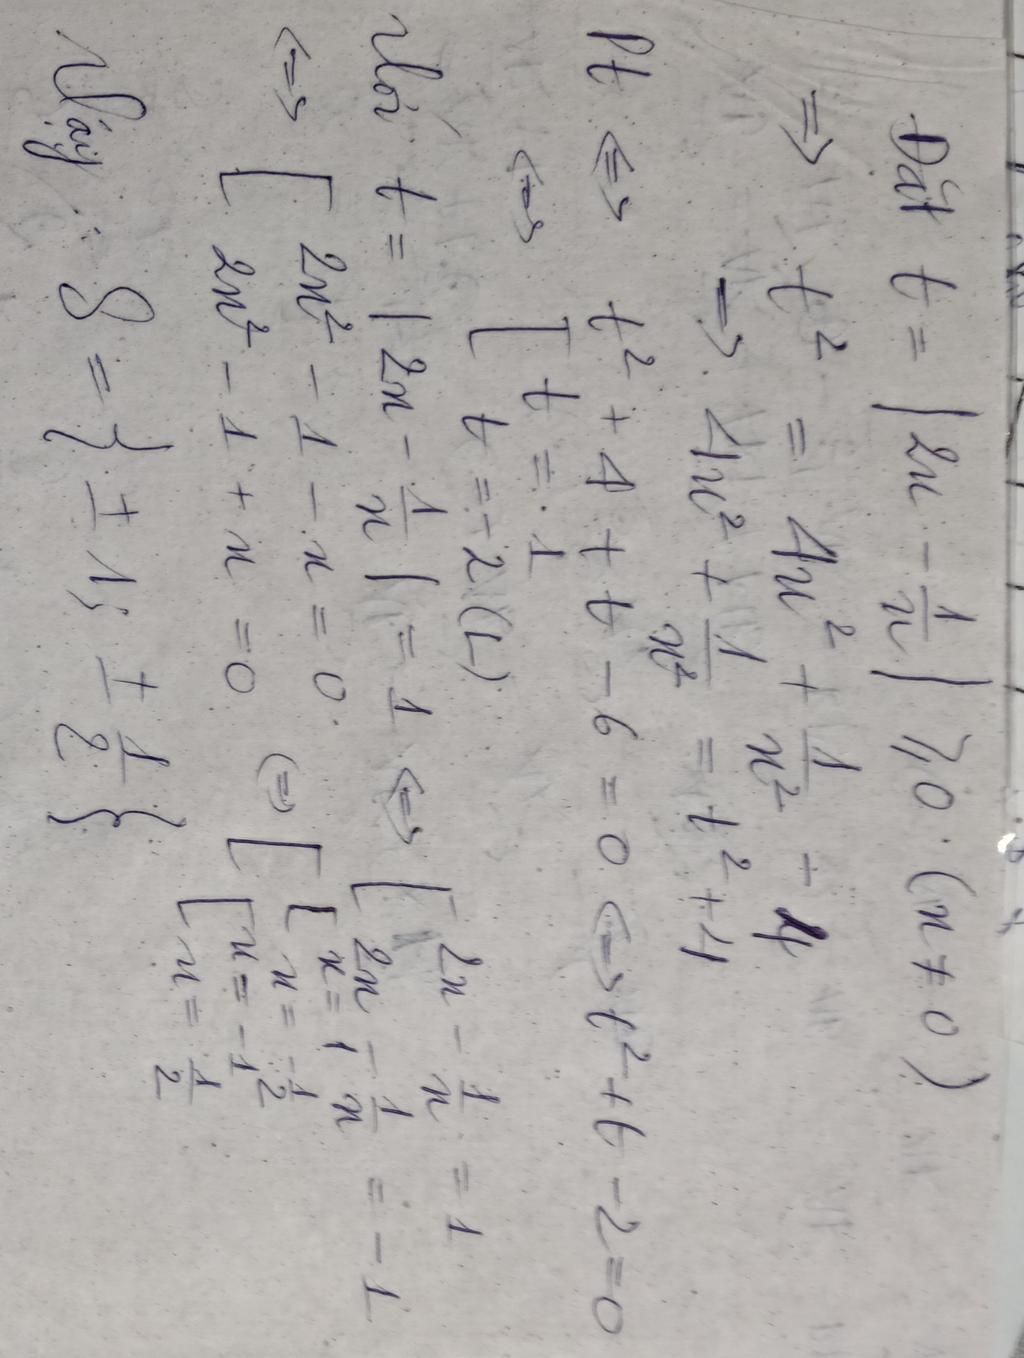 Đặt t = |2x - \frac{1}{x}| ⩾ 0. (x ≠ 0)
⇒ t² = 4x² + \frac{1}{x²} - 4
⇒ 4x² + \frac{1}{x²} = t² + 4
Pt ⇔ t² + 4 + t - 6 = 0 ⇔ t² + t - 2 = 0
⇔ [ t = 1
t = -2 (L)
Với t = |2x - \frac{1}{x}| = 1 ⇔ [ 2x - \frac{1}{x} = 1
2x - \frac{1}{x} = -1
⇔ [ 2x² - 1 - x = 0
2x² - 1 + x = 0
⇔ [ [ x = 1
x = -\frac{1}{2}
[ x = -1
x = \frac{1}{2}
Vậy : S = { ± 1; ± \frac{1}{2} }